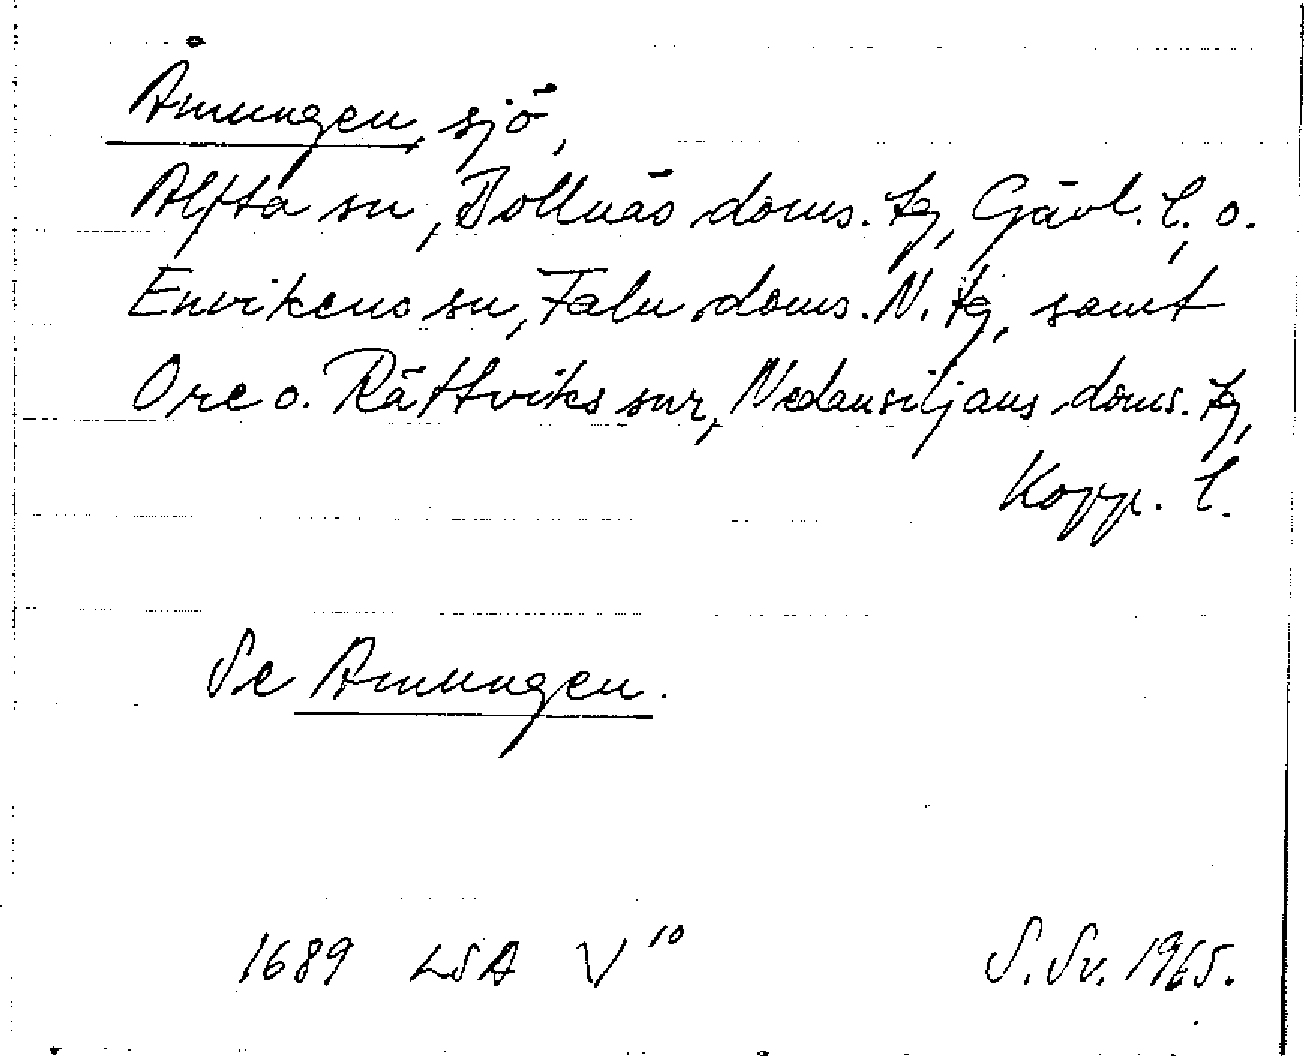 Åmungen, sjö,
Alfta sn, Bollnäs doms. tg, Gävl. l. o.
Envikens sn, Falu doms. N. tg, samt
Ore o. Rättviks snr, Nedansiljans doms. tg,
Kopp. l.
Se Amungen.
1689 LSA V¹⁰ S. Sv. 1965.